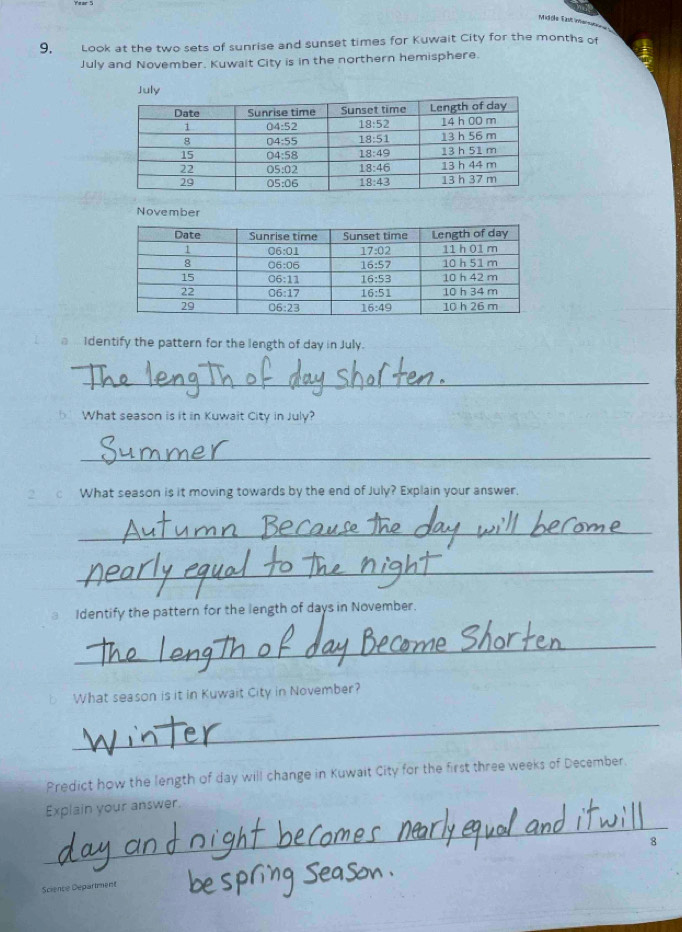 Year 5
Middle East
9. Look at the two sets of sunrise and sunset times for Kuwait City for the months of
July and November. Kuwait City is in the northern hemisphere.
July
Date Sunrise time Sunset time Length of day
1 04:52 18:52 14 h 00 m
8 04:55 18:51 13 h 56 m
15 04:58 18:49 13 h 51 m
22 05:02 18:46 13 h 44 m
29 05:06 18:43 13 h 37 m
November
Date Sunrise time Sunset time Length of day
1 06:01 17:02 11 h 01 m
8 06:06 16:57 10 h 51 m
15 06:11 16:53 10 h 42 m
22 06:17 16:51 10 h 34 m
29 06:23 16:49 10 h 26 m
a Identify the pattern for the length of day in July.
The length of day shorten.
b What season is it in Kuwait City in July?
Summer
2 c What season is it moving towards by the end of July? Explain your answer.
Autumn Because the day will become
nearly equal to the night
a Identify the pattern for the length of days in November.
the length of day Become Shorten
b What season is it in Kuwait City in November?
Winter
Predict how the length of day will change in Kuwait City for the first three weeks of December.
Explain your answer.
day and night becomes nearly equal and it will
8
be spring season.
Science Department